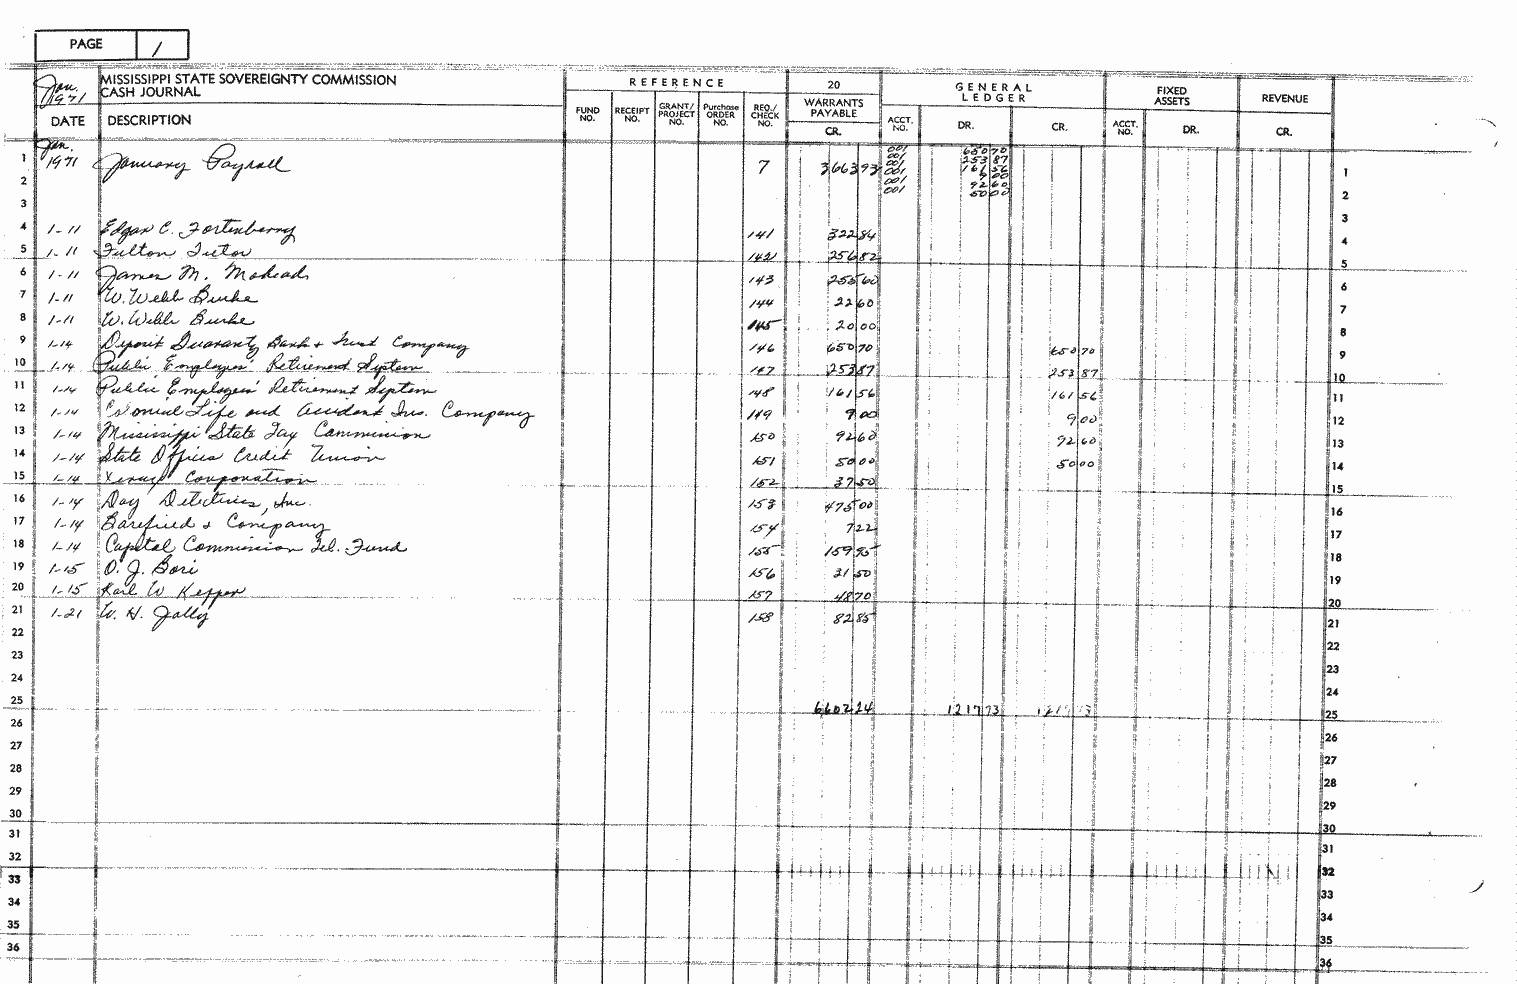 PAGE 1
Jan. 1971 MISSISSIPPI STATE SOVEREIGNTY COMMISSION
CASH JOURNAL
REFERENCE 20 GENERAL LEDGER FIXED ASSETS REVENUE
FUND NO. RECEIPT NO. GRANT/PROJECT NO. Purchase ORDER NO. REQ./CHECK NO. WARRANTS PAYABLE
DATE DESCRIPTION CR. ACCT. NO. DR. CR. ACCT. NO. DR. CR.
1 Jan. 1971 January Payroll 7 3663 93 001 650 70 1
001 253 87
001 161 56
9 00
001 92 60
2 001 50 00 2
3 3
4 1-11 Edgar C. Fortenberry 141 322 84 4
5 1-11 Fulton Tutor 142 256 82 5
6 1-11 James M. Mohead 143 255 60 6
7 1-11 W. Webb Burke 144 22 60 7
8 1-11 W. Webb Burke 145 20 00 8
9 1-14 Deposit Guaranty Bank & Trust Company 146 650 70 650 70 9
10 1-14 Public Employees' Retirement System 147 253 87 253 87 10
11 1-14 Public Employees' Retirement System 148 161 56 161 56 11
12 1-14 Colonial Life and Accident Ins. Company 149 9 00 9 00 12
13 1-14 Mississippi State Tax Commission 150 92 60 92 60 13
14 1-14 State Offices Credit Union 151 50 00 50 00 14
15 1-14 Xerox Corporation 152 37 50 15
16 1-14 Day Detectives, Inc. 153 475 00 16
17 1-14 Barefield & Company 154 7 22 17
18 1-14 Capitol Commission Tel. Fund 155 159 95 18
19 1-15 O. J. Bori 156 31 50 19
20 1-15 Karl W Kepper 157 48 70 20
21 1-21 W. H. Jolly 158 82 85 21
22 22
23 23
24 24
25 6602 24 1217 73 1217 73 25
26 26
27 27
28 28
29 29
30 30
31 31
32 32
33 33
34 34
35 35
36 36